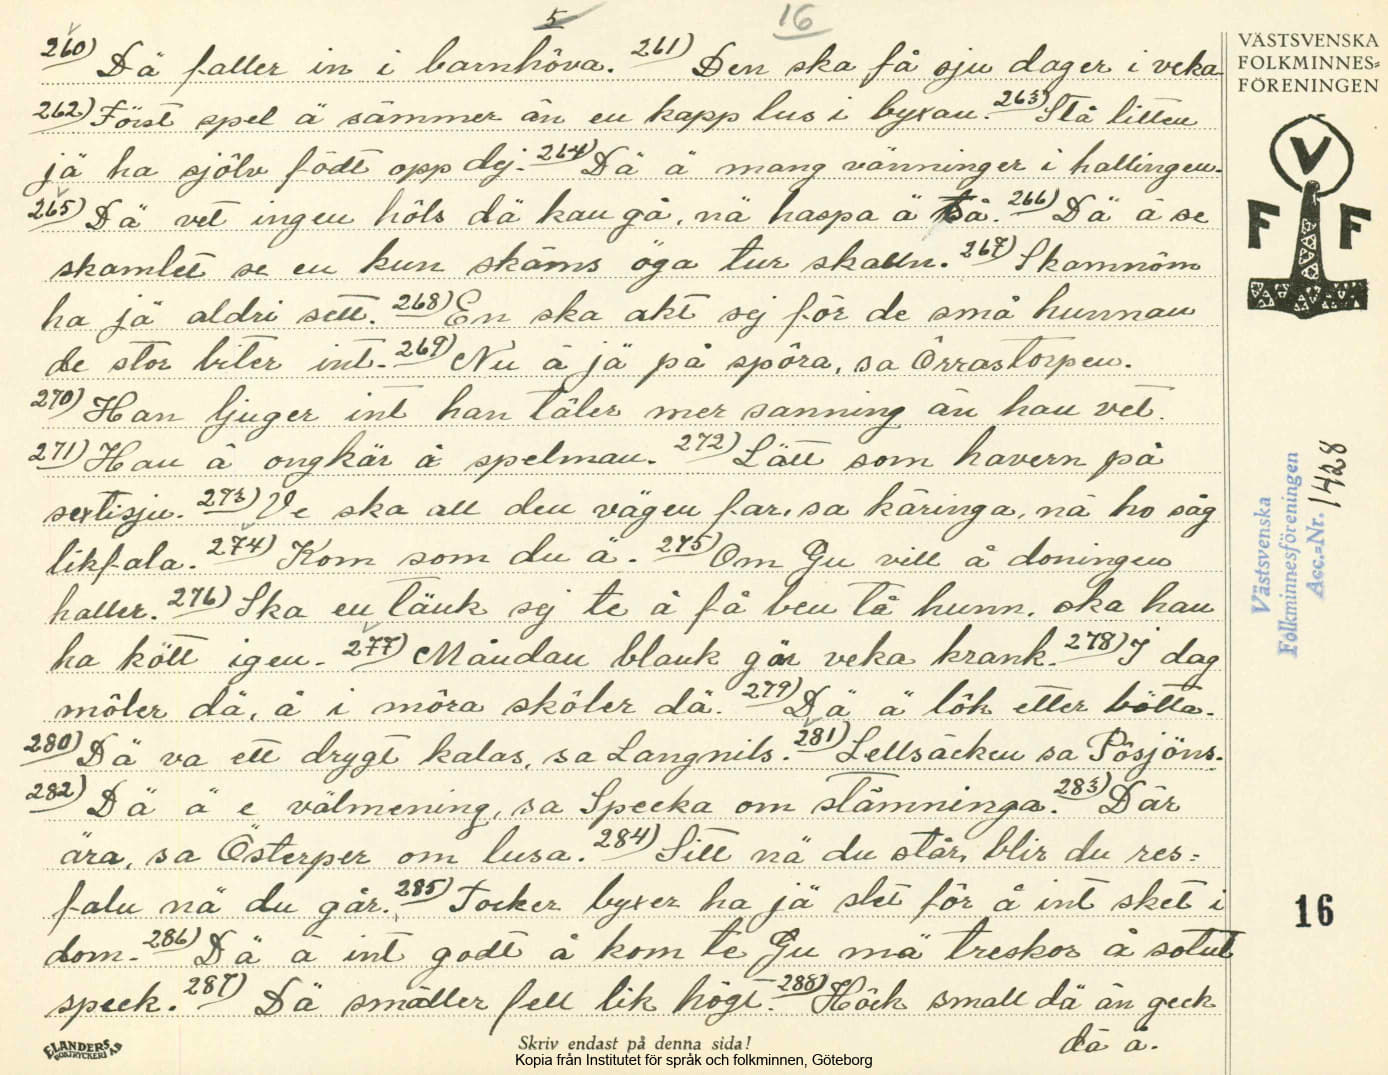 5 16
260) Dä faller in i barnhôva. 261) Den ska få sju dager i veka
262) Först spel ä sämmer än en kapp lus i byxan. 263) Stå litten
jä ha sjölv födt opp dej. 264) Dä ä mang vänninger i hallingen.
265) Dä vet ingen hôls dä kan gå, nä haspa ä å. 266) Dä ä se
skamlet se en kun skäms öga tur skalln. 267) Skamnöm
ha jä aldri sett. 268) En ska akt sej för de små hunnan
de stor biter int. 269) Nu ä jä på spôra, sa Örrastorpen.
270) Han ljuger int han tåler mer sanning än han vet.
271) Han ä ongkär å spelman. 272) Lätt som havern på
sextisju. 273) Ve ska all den vägen far, sa käringa, nä ho såg
likfala. 274) Kom som du ä. 275) Om Gu vill å doningen
haller. 276) Ska en tänk sej te å få ben tå hunn, ska han
ha kött igen. 277) Måndan blank gör veka krank. 278) I dag
môler dä, å i môra skôler dä. 279) Dä ä lôk etter bôtta.
280) Dä va ett drygt kalas, sa Langnils. 281) Lellsäcken sa Pôsjöns.
282) Dä ä e välmening, sa Specka om stämninga. 283) Där
ära, sa Österper om lusa. 284) Sitt nä du står, blir du res-
falu nä du går. 285) Tocker byxer ha jä slet för å int sket i
dom. 286) Dä ä int godt å kom te Gu mä treskor å sotut
speck. 287) Dä smäller fell lik högt. 288) Höck small dä än geck
dä ä.
VÄSTSVENSKA
FOLKMINNES-
FÖRENINGEN
V
F F
Västsvenska
Folkminnesföreningen
Acc.-Nr. 1428
16
ELANDERS
BOKTRYCKERI AB
Skriv endast på denna sida!
Kopia från Institutet för språk och folkminnen, Göteborg